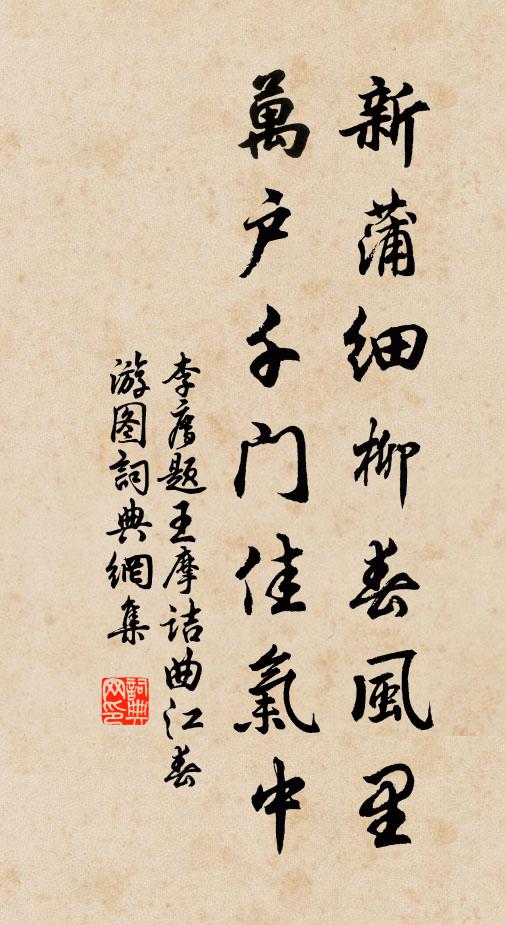 新蒲细柳春風里
萬户千門佳氣中
李廌题王摩诘曲江春
游图詞典網集
詞典网印